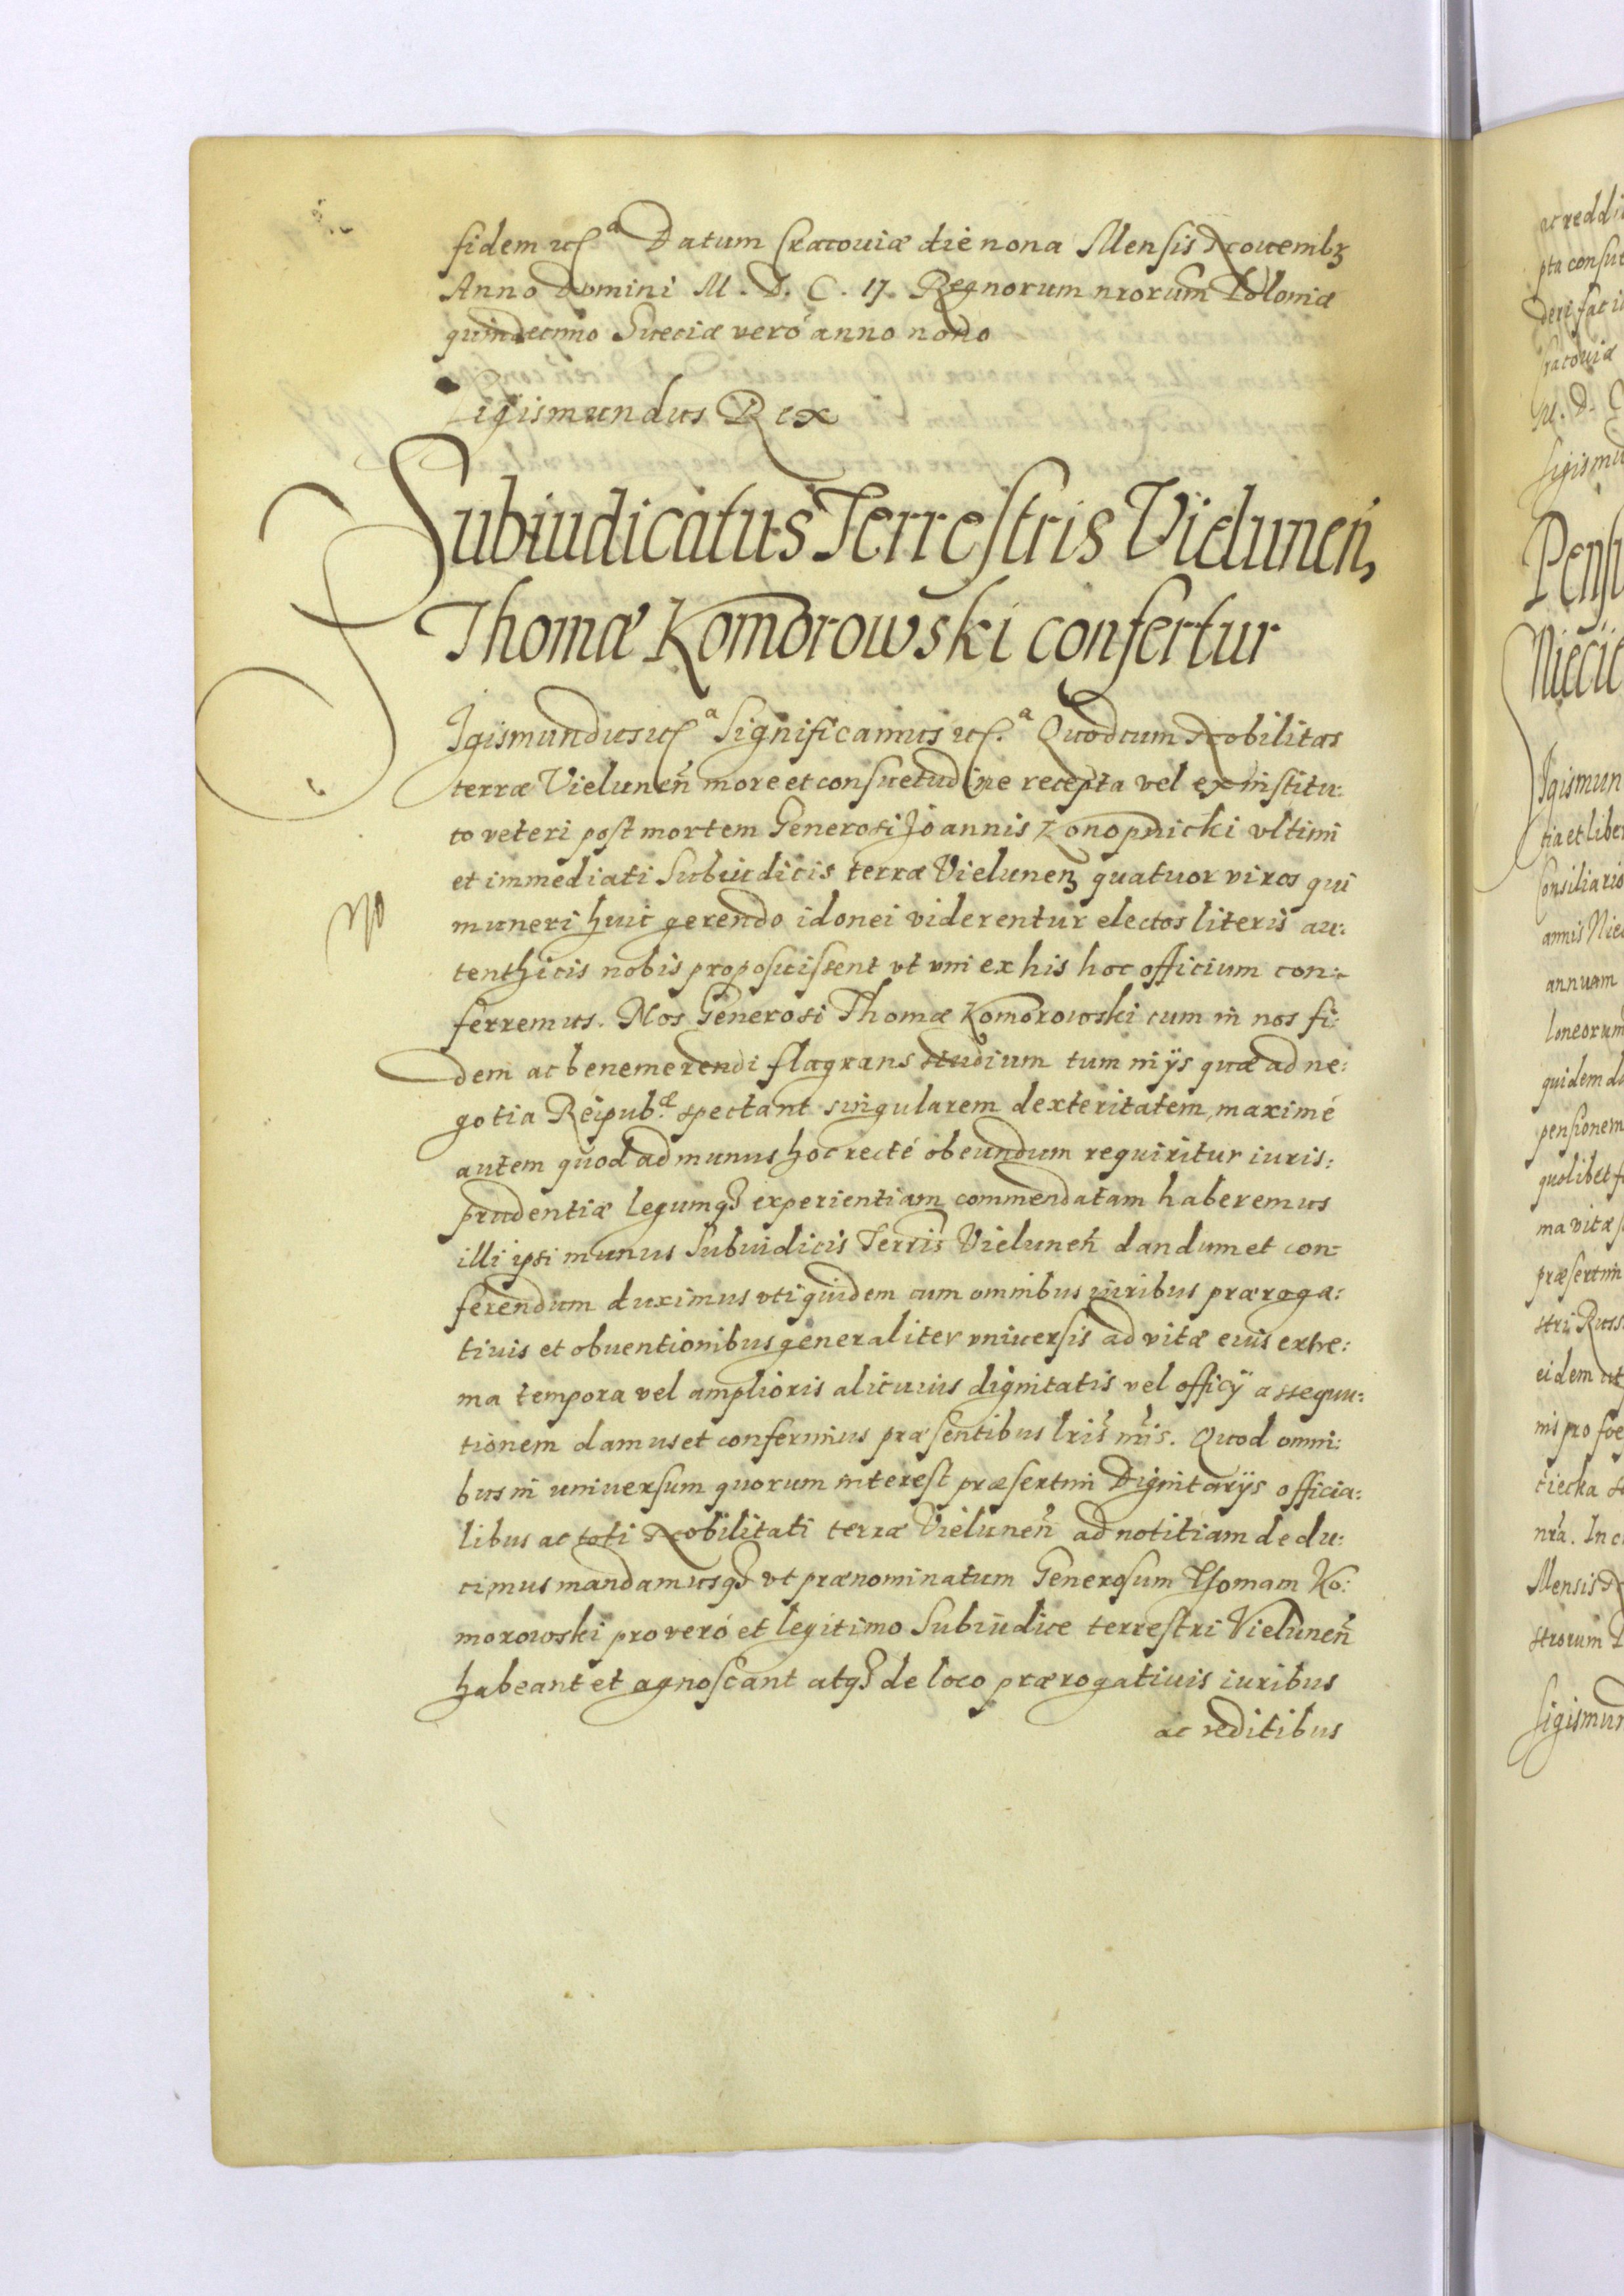 fidem etc^a Datum Cracouiæ die nona Mensis Nouembꝫ
Anno Domini M. D. C. 17. Regnorum nrorum Poloniæ
quindecimo Sueciæ veró anno nono
Sigismundus Rex
Subiudicatus Terrestris Vielunen̄,
Thomæ Komorowski confertur
Igismundus etc^a Significamus etc.^a Quod cum Nobilitas
terræ Vielunen̄ more et consuetudine recepta vel ex institu:
to veteri post mortem Generosi Joannis Konopnicki vltimi
et immediati Subiudicis terræ Vielunenꝫ quatuor viros qui
muneri huic gerendo idonei viderentur electos literis au:
tenthicis nobis proposuissent vt vni ex his hoc officium con:
ferremus. Nos Generosi Thomæ Komorowski cum in nos fi:
dem ac benemerendi flagrans studium tum in ijs quæ ad ne:
gotia Reipub.^æ spectant singularem dexteritatem, maximé
autem quod ad munus hoc recté obeundum requiritur iuris:
prudentiæ legumqꝫ experientiam commendatam haberemus
illi ipsi munus Subiudicis Terris Vielunen̄ dandum et con-
ferendum duximus vti quidem cum omnibus iuribus præroga:
tiuis et obuentionibus generaliter vniuersis ad vitæ eius extre:
ma tempora vel amplioris alicuius dignitatis vel officÿ assequu:
tionem damus et conferimus præsentibus lris nris. Quod omni:
bus in uniuersum quorum interest præsertim Dignitarÿs officia:
libus ac toti Nobilitati terræ Vielunen̄ ad notitiam dedu:
cimus mandamusqꝫ vt prænominatum Generosum Thomam Ko:
morowski pro veró et legitimo Subiudice terrestri Vielunen̄
habeant et agnoscant atqꝫ de loco prærogatiuis iuribus
ac reditibus